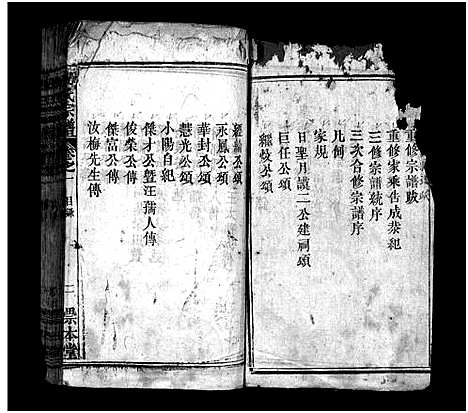 重修宗譜跋
重修家乘告成恭紀
三修宗譜統序
三次合修宗譜序
凡例
家規
日聖月讀二公建祠頌
巨任公頌
繼美公頌
經綸公頌
永鳳公頌
華封公頌
慧光公頌
小陽自紀
傑才公暨汪孺人傳
俊榮公傳
傑富公傳
汝梅先生傳
目錄
二
本堂